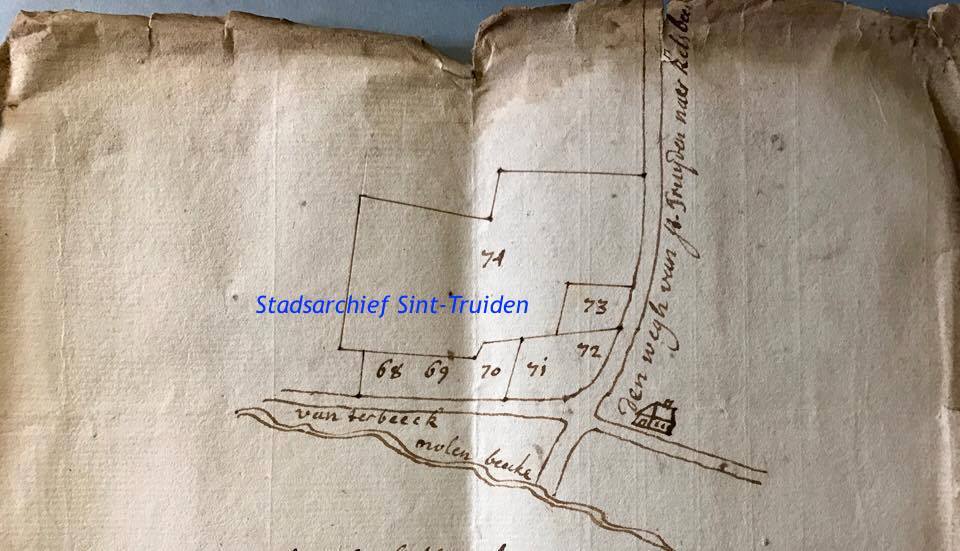 den wegh van st-Truyden naer
74
Stadsarchief Sint-Truiden
73
72
68 69 70 71
van terbeeck
molen beeke